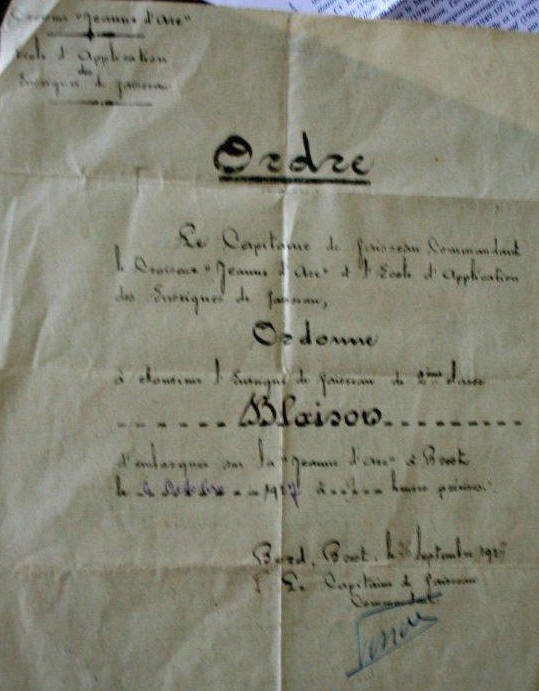 Croiseur "Jeanne d'Arc"
Ecole d'Application
des
Enseignes de Vaisseau
Ordre
Le Capitaine de Vaisseau Commandant
le Croiseur "Jeanne d'Arc" et l'Ecole d'Application
des Enseignes de Vaisseau,
Ordonne
à Monsieur l'Enseigne de Vaisseau de 2ème classe
Blaison
d'embarquer sur la "Jeanne d'Arc" à Brest
le Octobre 1927 à heures précises.
Bord, Brest, le Septembre 192
Le Capitaine de Vaisseau
Commandant